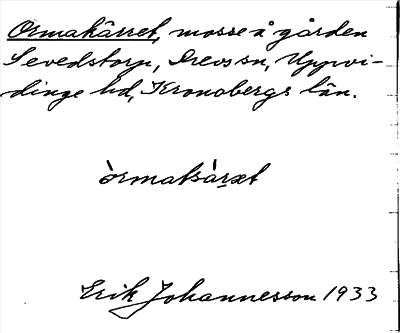 Ormakärret, mosse å gården
Sevedstorp, Drevs sn, Uppvi-
dinge hd, Kronobergs län.
Erik Johannesson 1933